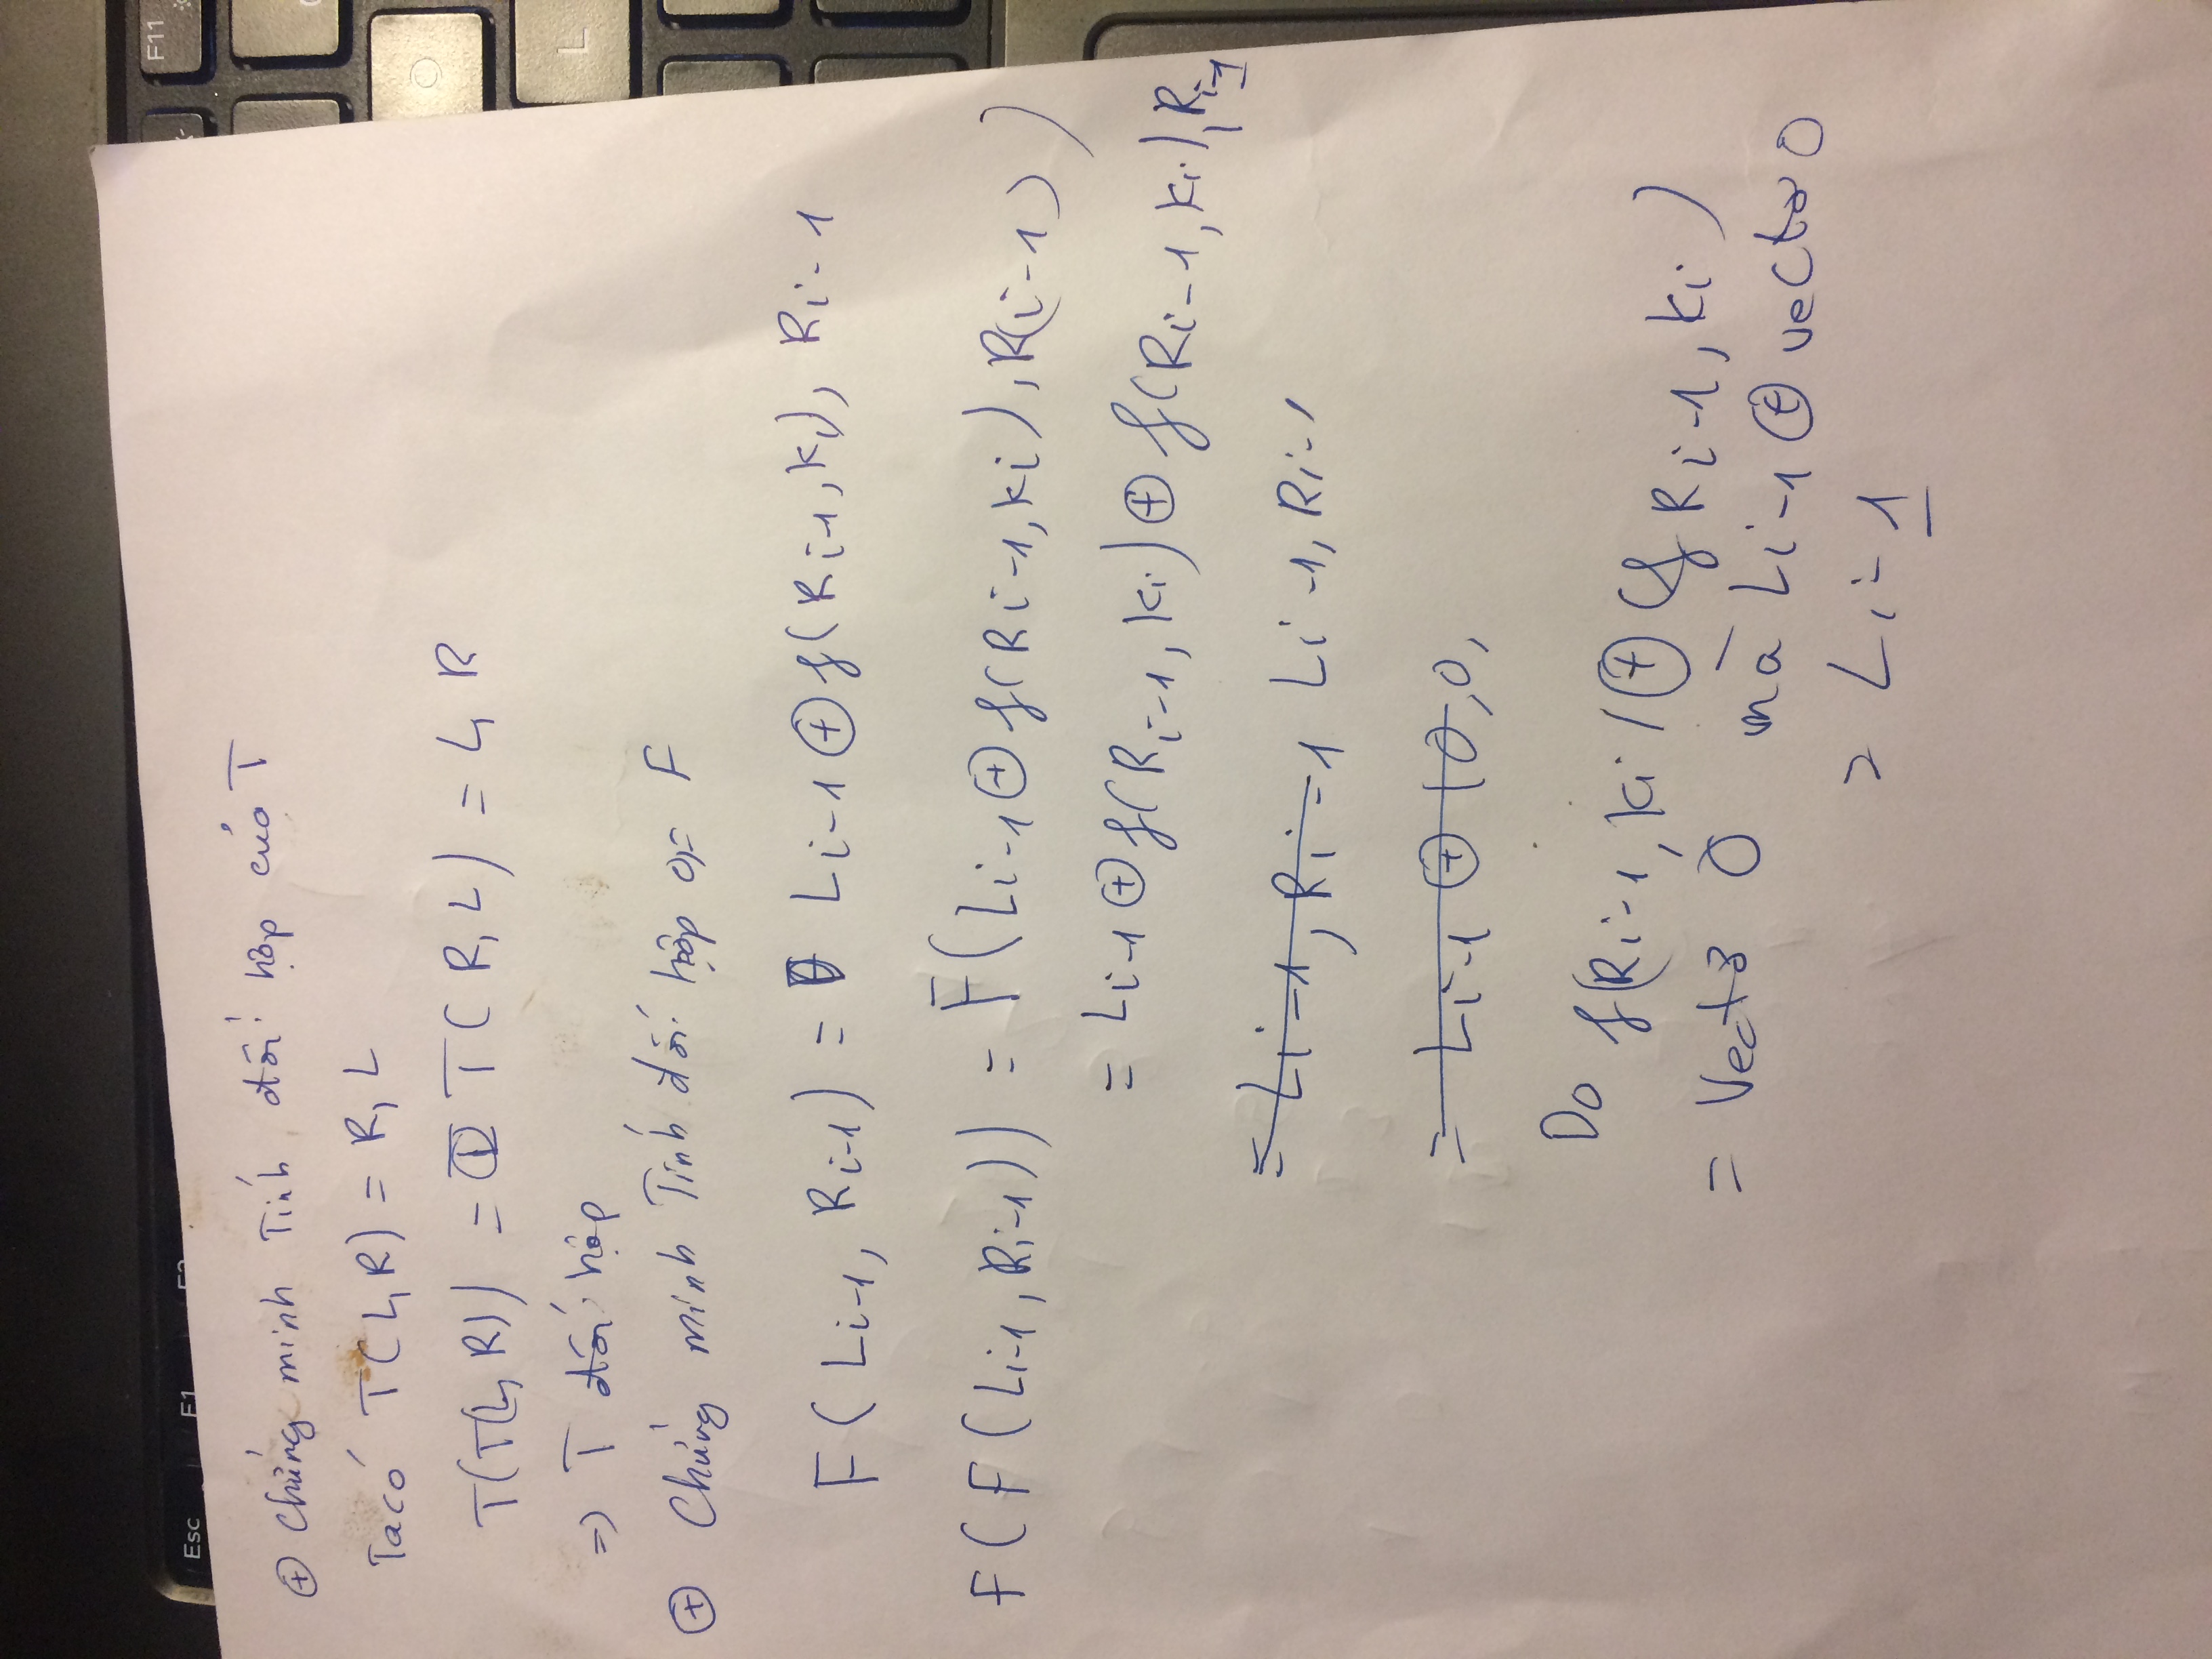 Esc F1 F2 F11
⊕ Chứng minh Tính đối hợp của T
Ta có T(L, R) = R, L
T(T(L, R)) = T(R, L) = L, R
=> T đối hợp
⊕ Chứng minh Tính đối hợp of F
F(Li-1, Ri-1) = Li-1 ⊕ f(Ri-1, Ki), Ri-1
F(F(Li-1, Ri-1)) = F(Li-1 ⊕ f(Ri-1, Ki), R(i-1))
= Li-1 ⊕ f(Ri-1, Ki) ⊕ f(Ri-1, Ki), Ri-1
= Li-1, Ri-1 Li-1, Ri-1
= Li-1 ⊕ (0,0,
Do f(Ri-1, Ki) ⊕ (f Ri-1, Ki)
= Vectơ 0 mà Li-1 ⊕ vectơ 0
= Li-1
O
L